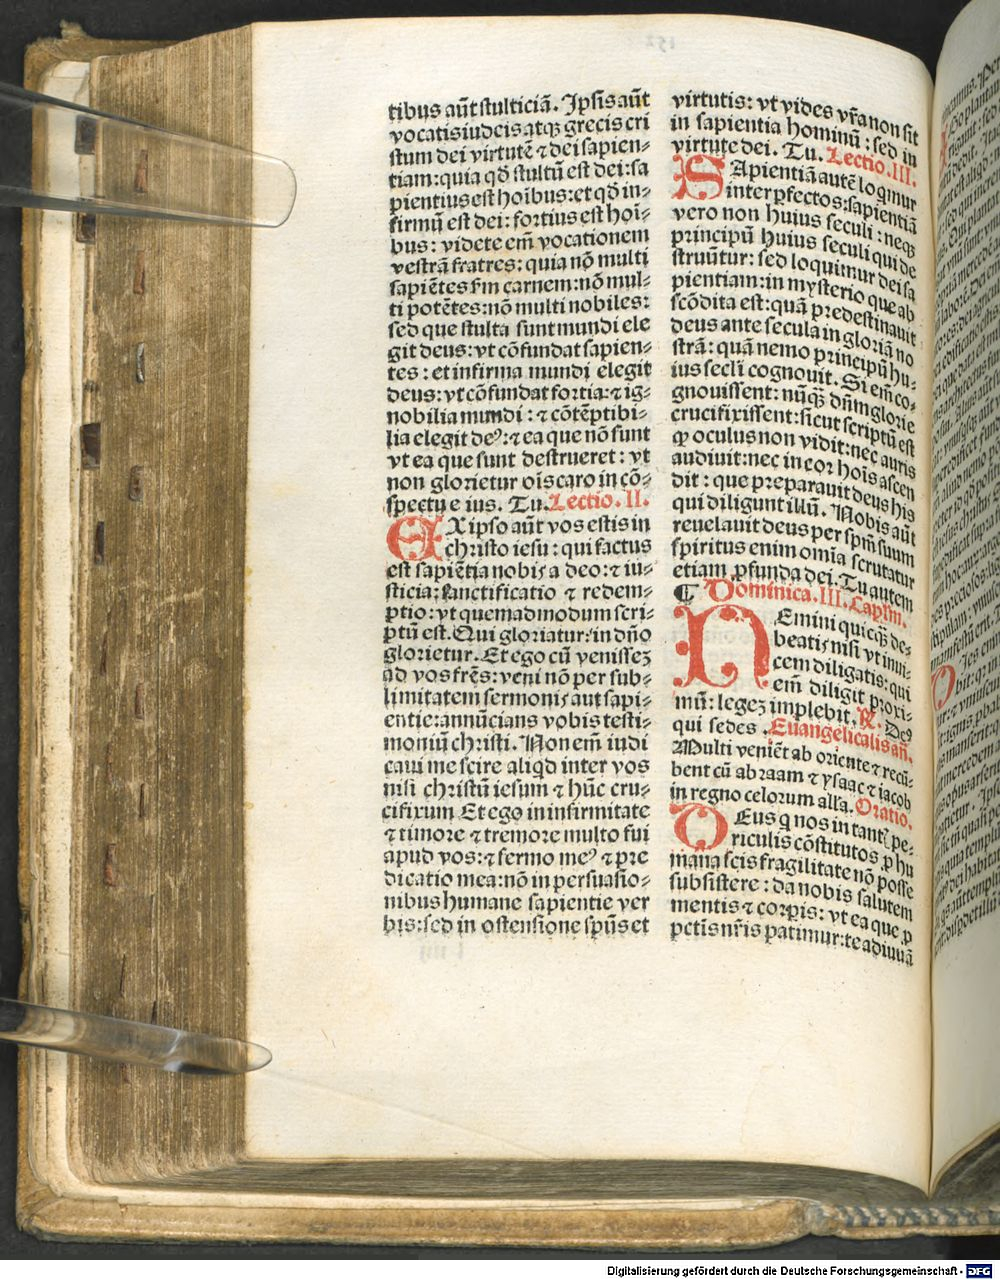 tibus aūt stulticiā. Ipsis aūt
vocatis iudeis atqꝫ grecis cri
stum dei virtutē ⁊ dei sapien⸗
tiam: quia qđ stultū est dei: sa
pientius est hoībus: et qđ in⸗
firmū est dei: fortius est hoī⸗
bus: videte em̄ vocationem
vestrā fratres: quia nō multi
sapiētes s̄m carnem: nō mul⸗
ti potētes: nō multi nobiles:
sed que stulta sunt mundi ele
git deus: vt cōfundat sapien⸗
tes: et infirma mundi elegit
deus: vt cōfundat fortia: ⁊ ig⸗
nobilia mundi: ⁊ cōtēptibi⸗
lia elegit deꝰ: ⁊ ea que nō sunt
vt ea que sunt destrueret: vt
non glorietur oīs caro in cō⸗
spectu eius. Tu. Lectio. II.
EX ipso aūt vos estis in
christo iesu: qui factus
est sapiētia nobis a deo: ⁊ iu⸗
sticia: sanctificatio ⁊ redem⸗
ptio: vt quemadmodum scri⸗
ptū est. Qui gloriatur: in dn̄o
glorietur. Et ego cū venisseꝫ
ad vos frēs: veni nō per sub⸗
limitatem sermonis aut sapi⸗
entie: annūcians vobis testi⸗
moniū christi. Non em̄ iudi
caui me scire aliqd inter vos
nisi christū iesum ⁊ hūc cru⸗
cifixum Et ego in infirmitate
⁊ timore ⁊ tremore multo fui
apud vos: ⁊ sermo meꝰ ⁊ pre
dicatio mea: nō in persuasio⸗
nibus humane sapientie ver
bis: sed in ostensione spūs et
virtutis: vt vides vr̄a non sit
in sapientia hominū: sed in
virtute dei. Tu. Lectio. III.
SApientiā autē loqmur
inter ꝑfectos: sapientiā
vero non huius seculi: neqꝫ
principū huius seculi qui de
struūtur: sed loquimur dei sa
pientiam: in mysterio que ab
scōdita est: quā predestinauit
deus ante secula in gloriā no
strā: quā nemo principū hu⸗
ius secli cognouit. Si em̄ co⸗
gnouissent: nūqꝫ dn̄m glorie
crucifixissent: sicut scriptū est
ꝙ oculus non vidit: nec auris
audiuit: nec in cor hoīs ascen
dit: que preparauit deus his
qui diligunt illū. Nobis aūt
reuelauit deus per spm̄ suum
spiritus enim omīa scrutatur
etiam ꝓfunda dei. Tu autem
¶ Dominica. III. Caplm̄.
NEmini quicqꝫ de⸗
beatis nisi vt inui⸗
cem diligatis: qui
em̄ diligit proxi⸗
mū: legeꝫ implebit. ℟. Deꝰ
qui sedes. Euangelicalis an̄.
Multi veniēt ab oriente ⁊ recū⸗
bent cū abraam ⁊ ysaac ⁊ iacob
in regno celorum alla. Oratio.
DEus q nos in tantꝭ pe⸗
riculis cōstitutos ꝓ hu
mana scis fragilitate nō posse
subsistere: da nobis salutem
mentis ⁊ corpis: vt ea que ꝓ
pctis nr̄is patimur: te adiuuā
Digitalisierung gefördert durch die Deutsche Forschungsgemeinschaft - DFG